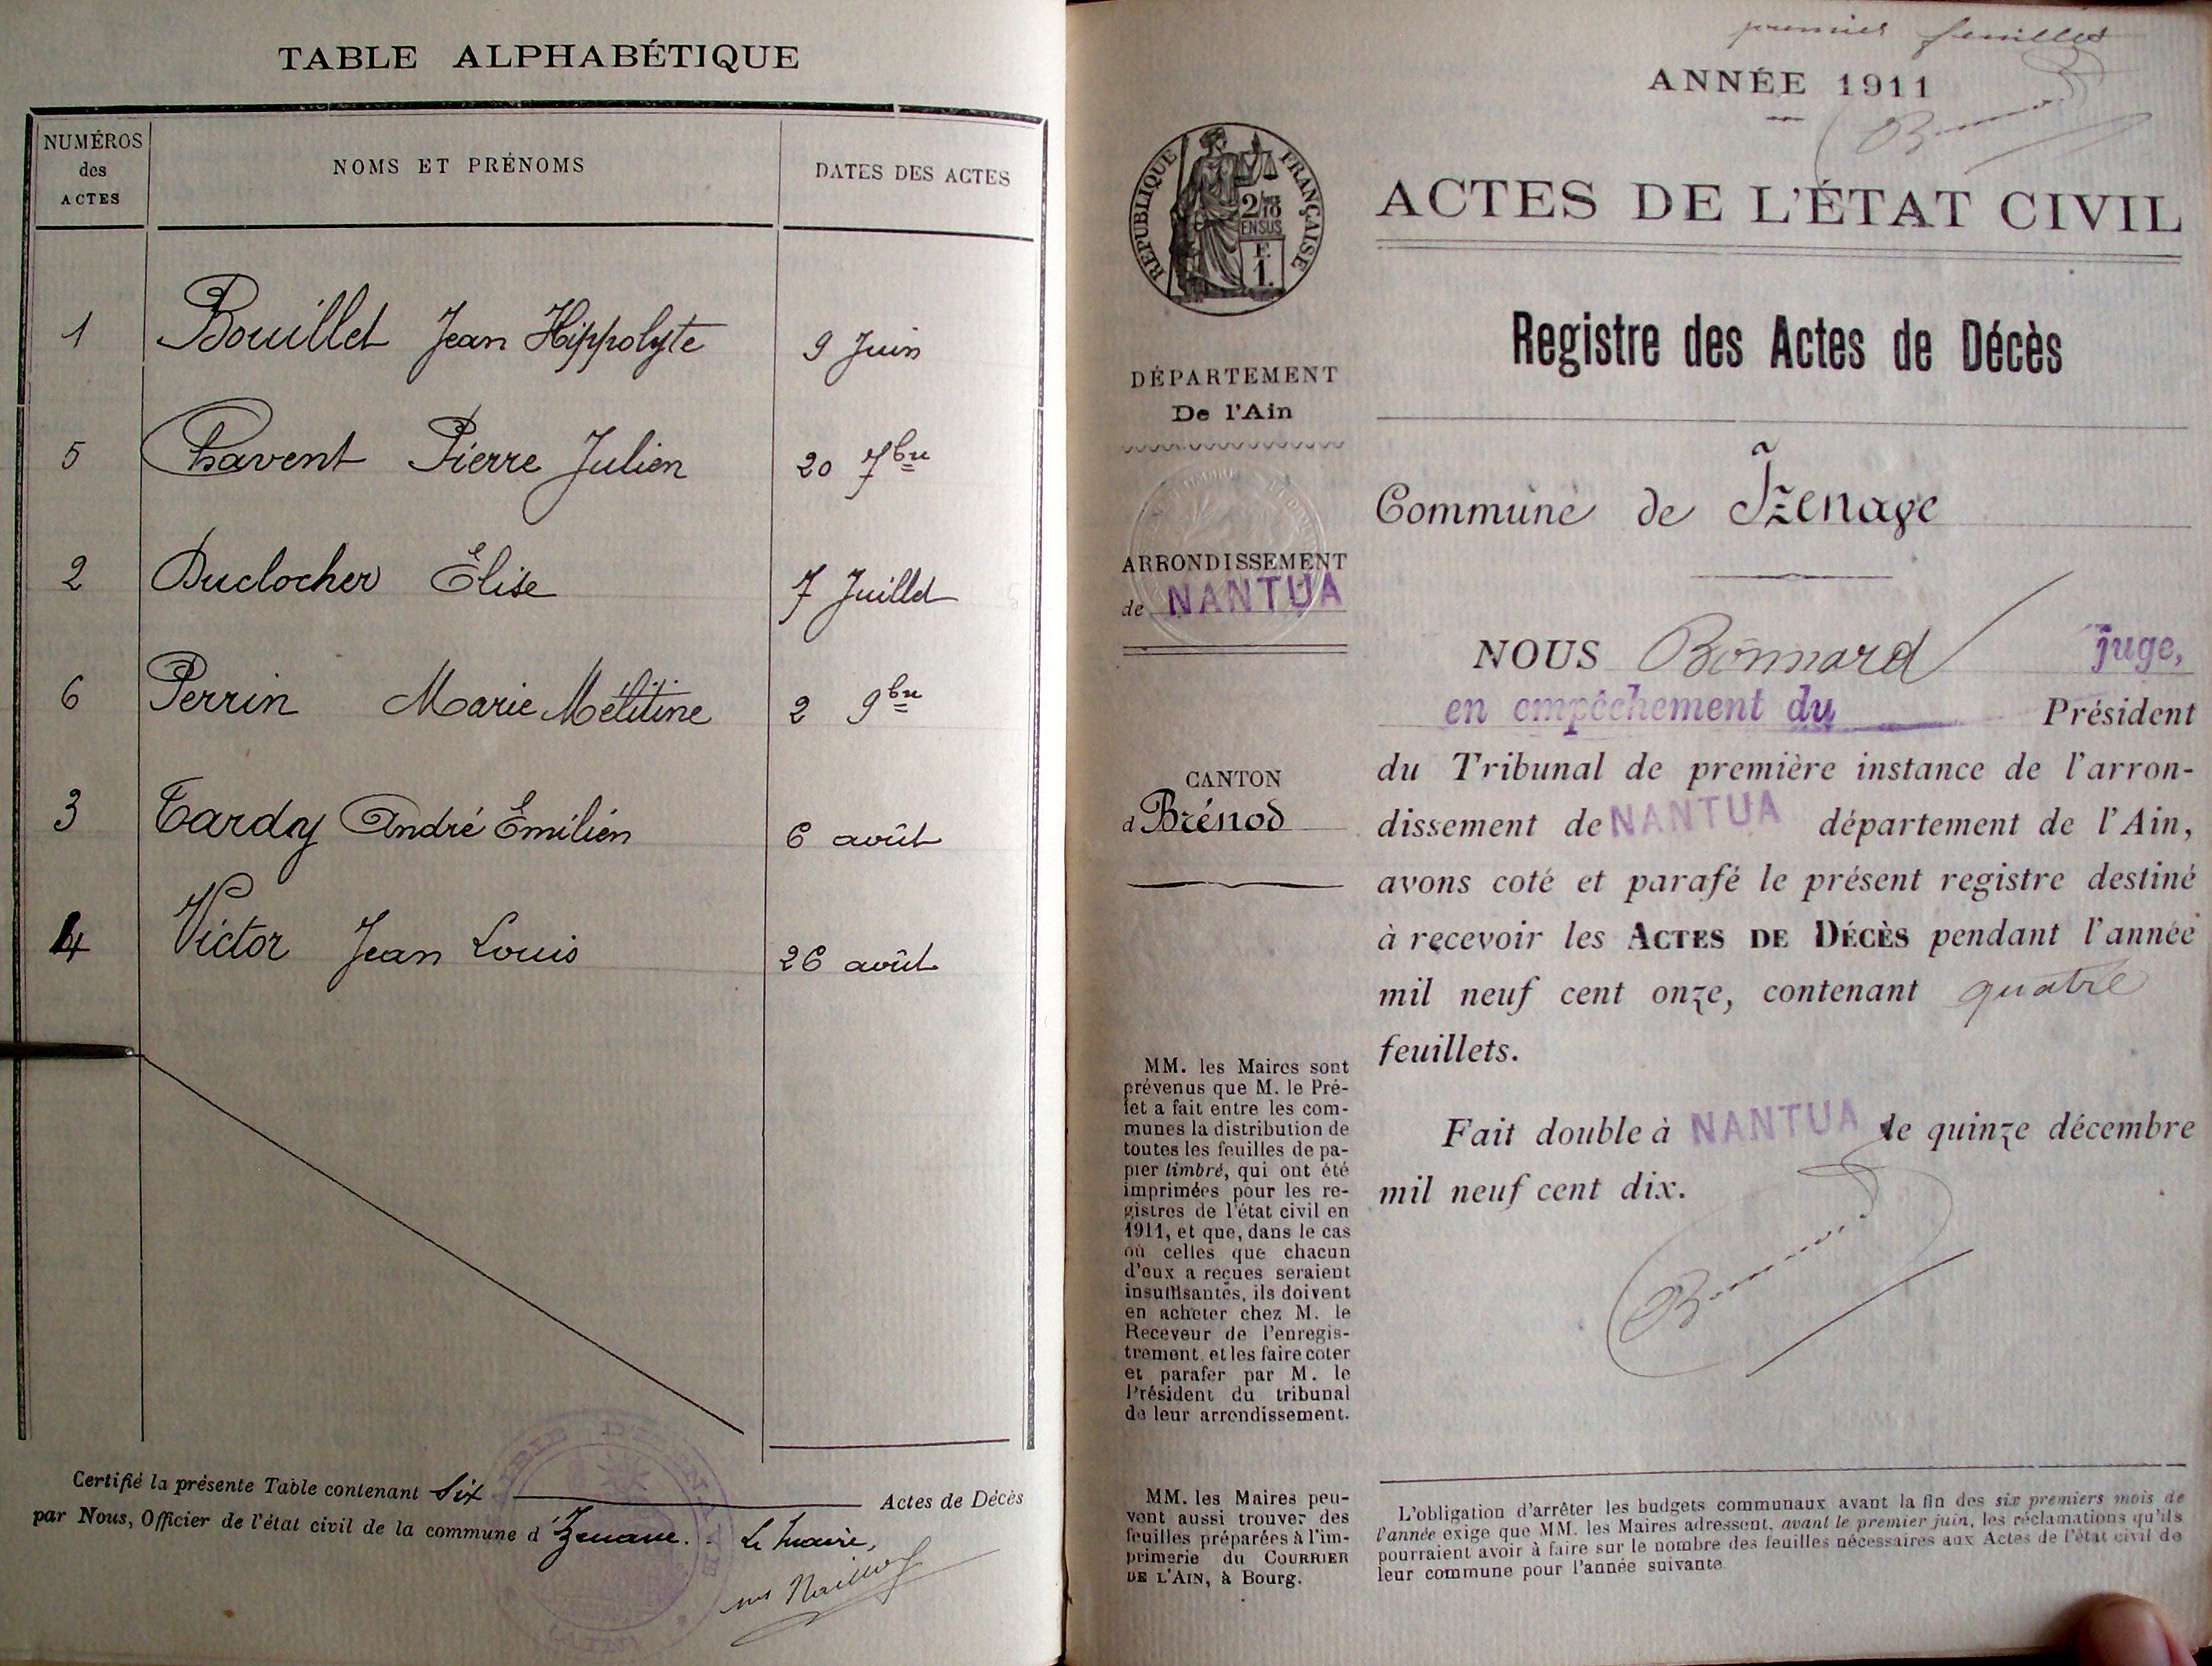 TABLE ALPHABÉTIQUE
NUMÉROS des ACTES
NOMS ET PRÉNOMS
DATES DES ACTES
1 Bouillet Jean Hippolyte 9 Juin
5 Chavent Pierre Julien 20 7bre
2 Duclocher Elise 7 Juillet
6 Perrin Marie Mélitine 2 9bre
3 Tardy André Emilien 6 août
4 Victor Jean Louis 26 août
Certifié la présente Table contenant Six Actes de Décès
par Nous, Officier de l'état civil de la commune d'Izenave. Le Maire,
premier feuillet
ANNÉE 1911
RÉPUBLIQUE FRANÇAISE
2/10 EN SUS
F.
1.
DÉPARTEMENT
De l'Ain
ARRONDISSEMENT
de NANTUA
CANTON
d Brénod
MM. les Maires sont
prévenus que M. le Pré-
fet a fait entre les com-
munes la distribution de
toutes les feuilles de pa-
pier timbré, qui ont été
imprimées pour les re-
gistres de l'état civil en
1911, et que, dans le cas
où celles que chacun
d'eux a reçues seraient
insuffisantes, ils doivent
en acheter chez M. le
Receveur de l'enregis-
trement, et les faire coter
et parafer par M. le
Président du tribunal
de leur arrondissement.
MM. les Maires peu-
vent aussi trouver des
feuilles préparées à l'im-
primerie du COURRIER
DE L'AIN, à Bourg.
ACTES DE L'ÉTAT CIVIL
Registre des Actes de Décès
Commune de Izenave
NOUS Bonnard juge,
en empêchement du Président
du Tribunal de première instance de l'arron-
dissement de NANTUA département de l'Ain,
avons coté et parafé le présent registre destiné
à recevoir les ACTES DE DÉCÈS pendant l'année
mil neuf cent onze, contenant quatre
feuillets.
Fait double à NANTUA le quinze décembre
mil neuf cent dix.
L'obligation d'arrêter les budgets communaux avant la fin des six premiers mois de
l'année exige que MM. les Maires adressent, avant le premier juin, les réclamations qu'ils
pourraient avoir à faire sur le nombre des feuilles nécessaires aux Actes de l'état civil de
leur commune pour l'année suivante.